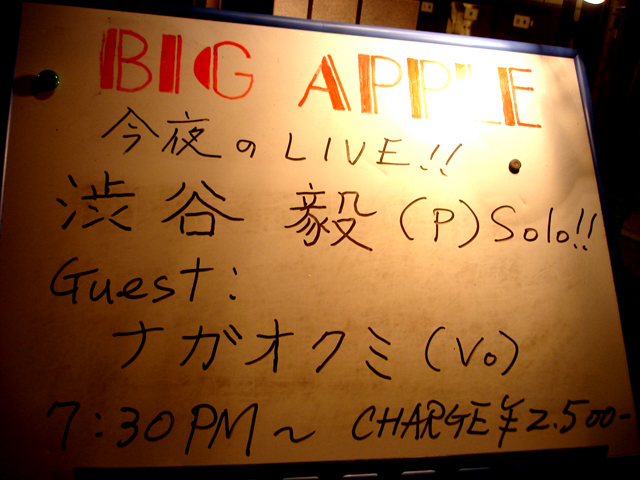 BIG APPLE
今夜のLIVE!!
渋谷 毅 (P) Solo!!
Guest:
ナガオクミ (Vo)
7:30PM~ CHARGE¥2.500-